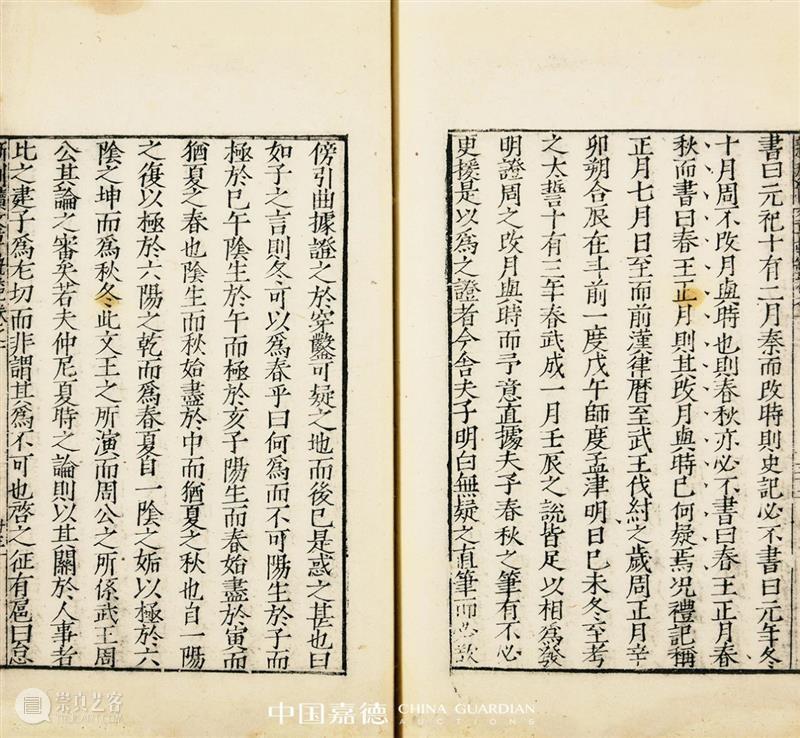 書曰元祀十有二月秦而改時則史記必不書曰元年冬
十月周不改月與時也則春秋亦必不書曰春王正月春
秋而書曰春王正月則其改月與時巳何疑焉况禮記稱
正月七月日至而前漢律曆至武王伐紂之歲周正月辛
卯朔合辰在斗前一度戊午師度孟津明日巳未冬至考
之太誓十有三年春武成一月壬辰之說皆足以相爲發
明證周之改月與時而予意直據夫子春秋之筆有不必
更援是以爲之證者今舍夫子明白無疑之直筆而必欲
傍引曲據證之於穿鑿可疑之地而後巳是惑之甚也曰
如子之言則冬可以爲春乎曰何爲而不可陽生於子而
極於巳午陰生於午而極於亥子陽生而春始盡於寅而
猶夏之春也陰生而秋始盡於申而猶夏之秋也自一陽
之復以極於六陽之乾而爲春夏自一陰之姤以極於六
陰之坤而爲秋冬此文王之所演而周公之所係武王周
公其論之審矣若夫仲尼夏時之論則以其關於人事者
比之建子爲尤切而非謂其爲不可也啓之征有扈曰怠
崇真艺客
中国嘉德 CHINA GUARDIAN
AUCTIONS